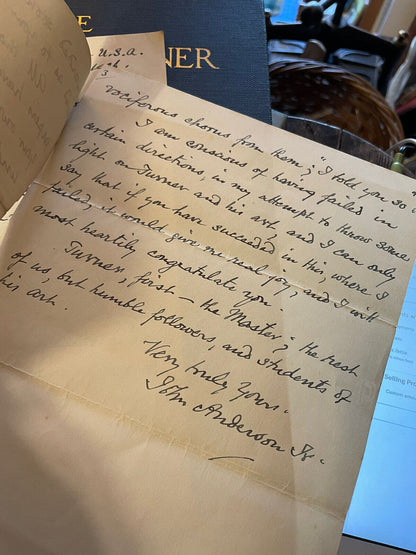 E
NER
U.S.A.
3
vociferous chorus from them; "I told you so"
I am conscious of having failed in
certain directions, in my attempt to throw some
light on Turner and his art, and I can only
say that if you have succeeded in this, where I
failed, it would give me real joy, and I will
most heartily congratulate you.
Turner, first – the Master; the rest
of us, but humble followers, and students of
his art.
Very truly yours.
John Anderson Jr.
Selling Pr